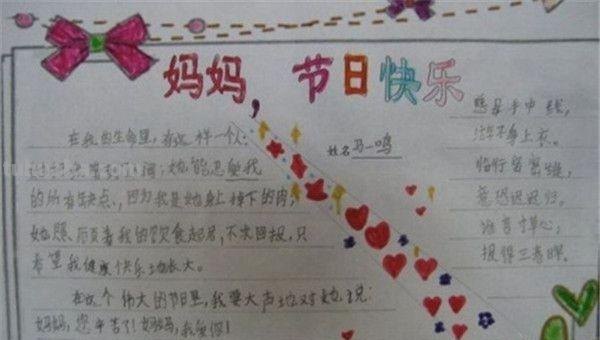 妈妈,节日快乐
姓名马一鸣
在我的生命里,有这样一个人:
她能忍受我
的所有缺点,因为我是她身上掉下的肉,
她照顾着我的饮食起居,不求回报,只
希望我健康快乐地长大。
在这个伟大的节日里,我要大声地对她说:
妈妈,您辛苦了!妈妈,我爱你!
慈母手中线,
游子身上衣。
临行密密缝,
意恐迟迟归。
谁言寸草心,
报得三春晖。